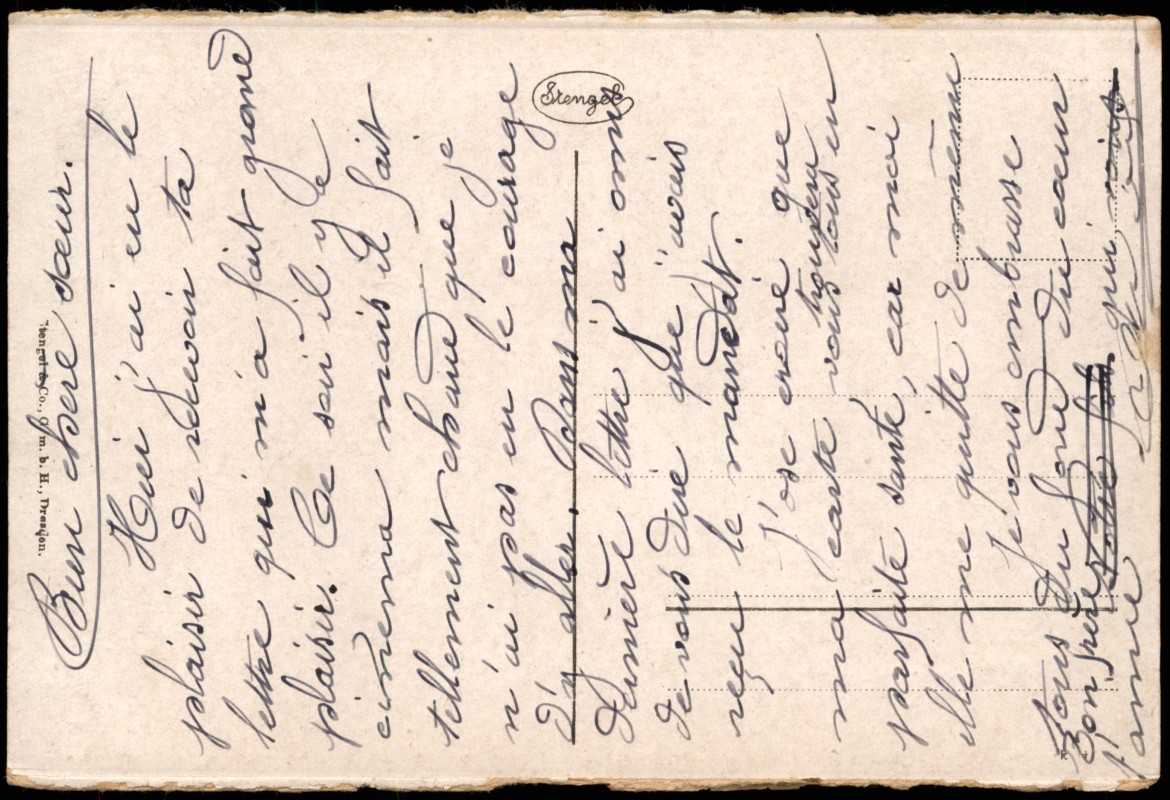 Bien chère sœur.
Hui j'ai eu le
plaisir de reçevoir ta
lettre qui m'a fait grand
plaisir. Ce soir il y a
cinema mais il fait
tellement chaud que je
n'ai pas eu le courage
d'y aller. Dans ma
dernière lettre j'ai omis
de vous dire que j'avais
reçu le mandat.
J'ose croire que
ma carte vous trouvera tous en
parfaite santé, car moi
elle me quitte de même
Je vous embrasse
tous du fond du cœur
Bon frère qui
t'aime
Stengel
Stengel & Co., G. m. b. H., Dresden.